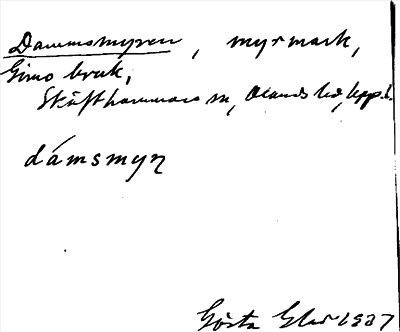 Dammsmyren, myrmark,
Gimo bruk,
Skäfthammars sn, Olands hd, Uppl.
dámsmyṛ
Gösta 1937